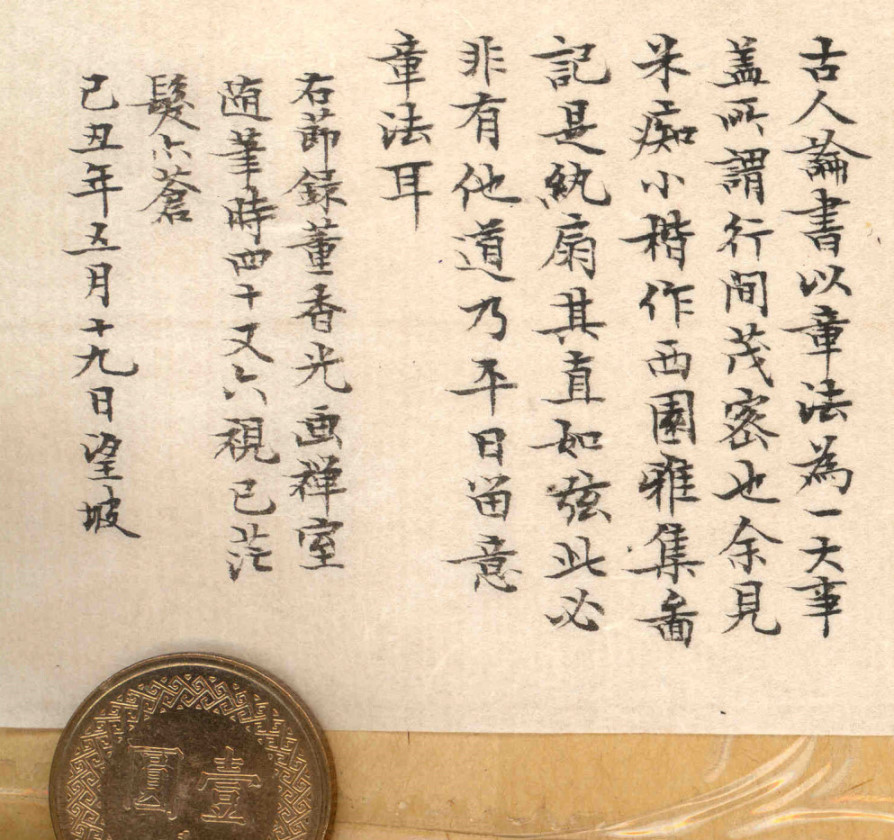 古人論書以章法為一大事
盖所謂行間茂密也余見
米癡小楷作西園雅集圖
記是紈扇其直如弦此必
非有他道乃平日留意
章法耳
右節錄董香光画禅室
随筆時四十又六視已茫
髮亦蒼
己丑年五月十九日望坡
壹圓